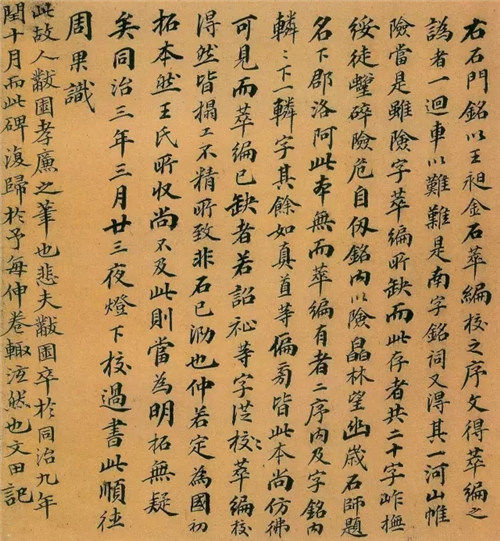 右石門銘以王昶金石萃編校之序文得萃編之
譌者一迴車以難難是南字銘詞又得其一河山帷
險當是雖險字萃編所缺而此存者共二十字岞撫
綏徒碎險危自仭銘內以險皛林望幽嵗石師題
名下郡洛阿此本無而萃編有者二序內及字銘內
轔〻下一轔字其餘如真首等偏旁皆此本尚仿彿
可見而萃編已缺者若詔祉等字洪校〻萃編校
得然皆搨工不精所致非石已泐也仲若定為國初
拓本然王氏所收尚不及此則當為明拓無疑
矣同治三年三月廿三夜燈下校過書此順德
周果識
此故人黻圃孝廉之筆也悲夫黻圃卒於同治九年
閏十月而此碑復歸於予每伸卷輙泫然也文田記